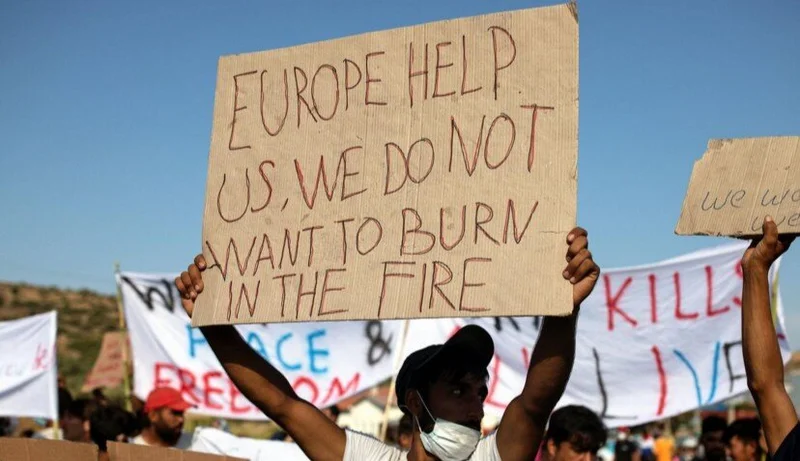 EUROPE HELP
US, WE DO NOT
WANT TO BURN
IN THE FIRE
We
PEACE &
FREEDOM
KILLS
LIVE